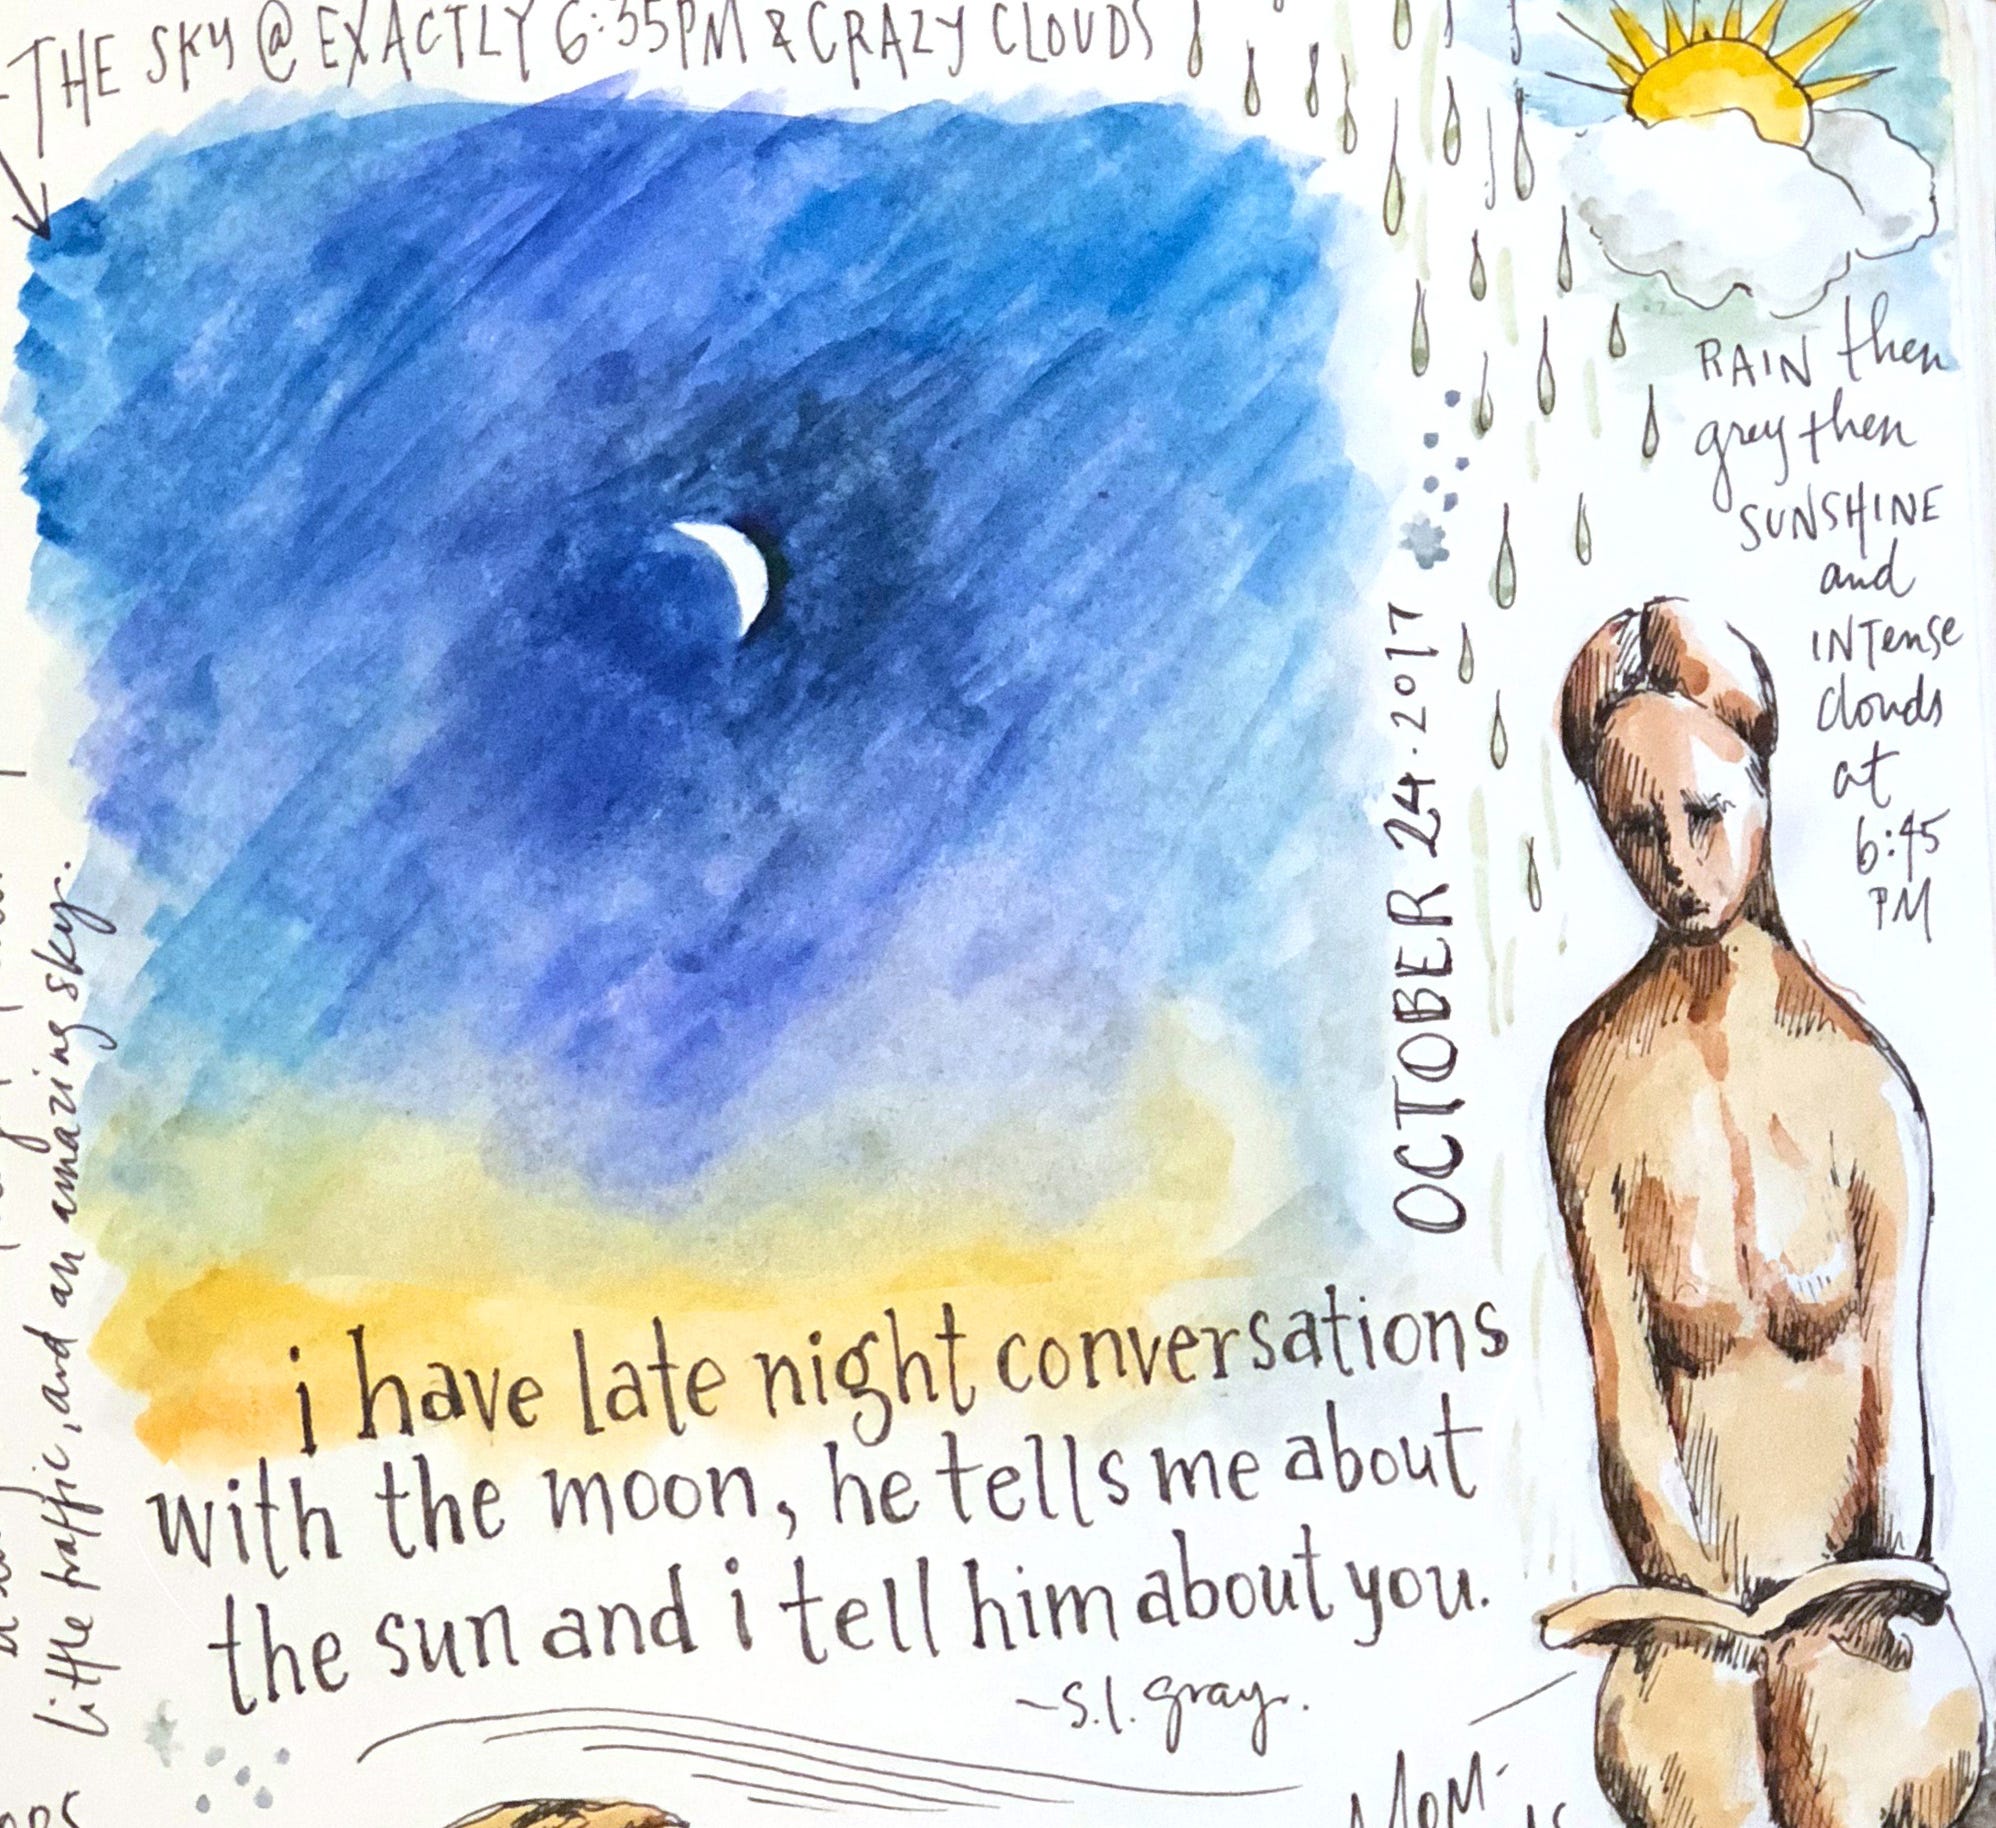 THE SKY @ EXACTLY 6:35PM & CRAZY CLOUDS
RAIN then
grey then
SUNSHINE
and
INTense
clouds
at
6:45
PM
OCTOBER 24.2017
little traffic, and an amazing sky.
i have late night conversations
with the moon, he tells me about
the sun and i tell him about you.
~s.l. gray.
MOM